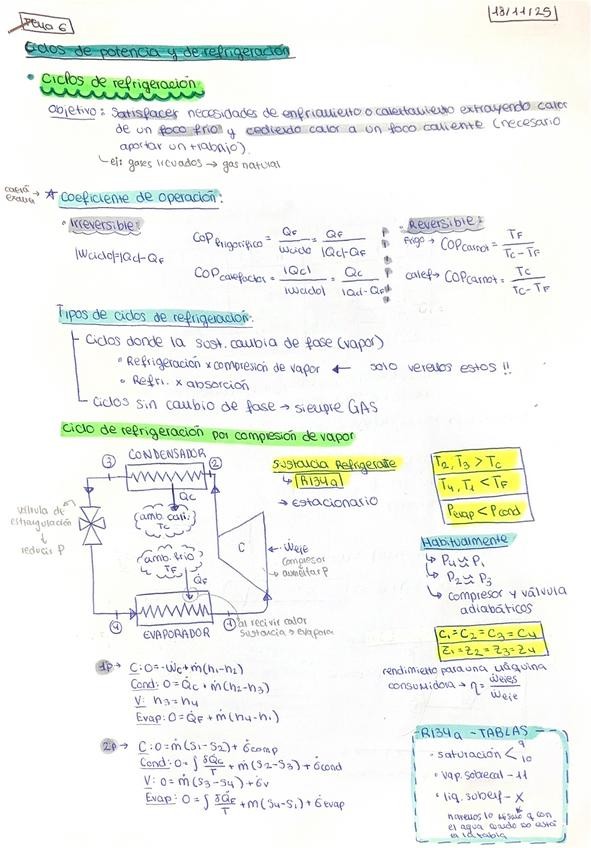 TEMA 6
13/11/25
Ciclos de potencia y de refrigeración
• Ciclos de refrigeración
objetivo: Satisfacer necesidades de enfriamiento o calentamiento extrayendo calor
de un foco frío y cediendo calor a un foco caliente (necesario
aportar un trabajo).
↳ ej: gases licuados → gas natural
→ ☆ Coeficiente de operación:
• Irreversible:
|Wciclo|=|Qc|-QF
COP frigorífico = QF / Wciclo = QF / |Qc|-QF
COP calefactor = |Qc| / |Wciclo| = Qc / |Qc|-QF
• Reversible:
frigo → COPcarnot = TF / Tc-TF
calef → COPcarnot = Tc / Tc-TF
Tipos de ciclos de refrigeración:
Ciclos donde la sust. cambia de fase (vapor)
• Refrigeración x compresión de vapor ← solo veremos estos !!
• Refri. x absorción
Ciclos sin cambio de fase → siempre GAS
Ciclo de refrigeración por compresión de vapor
CONDENSADOR
③
②
Q̇c
amb. cali.
Tc
válvula de
estrangulación
↓
reducir P
amb. frío
TF
Q̇F
C
← Ẇeje
compresor
→ aumentar P
④
①
EVAPORADOR
al recivir calor
sustancia → evapora
Sustancia Refrigerante
↳ R134a
→ estacionario
T2, T3 > Tc
T4, T1 < TF
Pevap < Pcond
Habitualmente
↳ P4 ≃ P1
↳ P2 ≃ P3
↳ compresor y válvula
adiabáticos
C1 = C2 = C3 = C4
Z1 = Z2 = Z3 = Z4
rendimiento para una máquina
consumidora → η = Ẇejes / Ẇeje
1P → C: 0=-Ẇc+ṁ(h1-h2)
Cond: 0=Q̇c+ṁ(h2-h3)
V: h3=h4
Evap: 0=Q̇F+ṁ(h4-h1)
2P → C: 0=ṁ(s1-s2)+σ̇comp
Cond: 0=∫ δQ̇c / T + ṁ(s2-s3)+σ̇cond
V: 0=ṁ(s3-s4)+σ̇v
Evap: 0=∫ δQ̇F / T + ṁ(s4-s1)+σ̇evap
R134a - TABLAS
• saturación < 9
10
• vap. sobrecal - 11
• liq. subenf - X
haremos lo mismo q con
el agua cuando no está
en la tabla